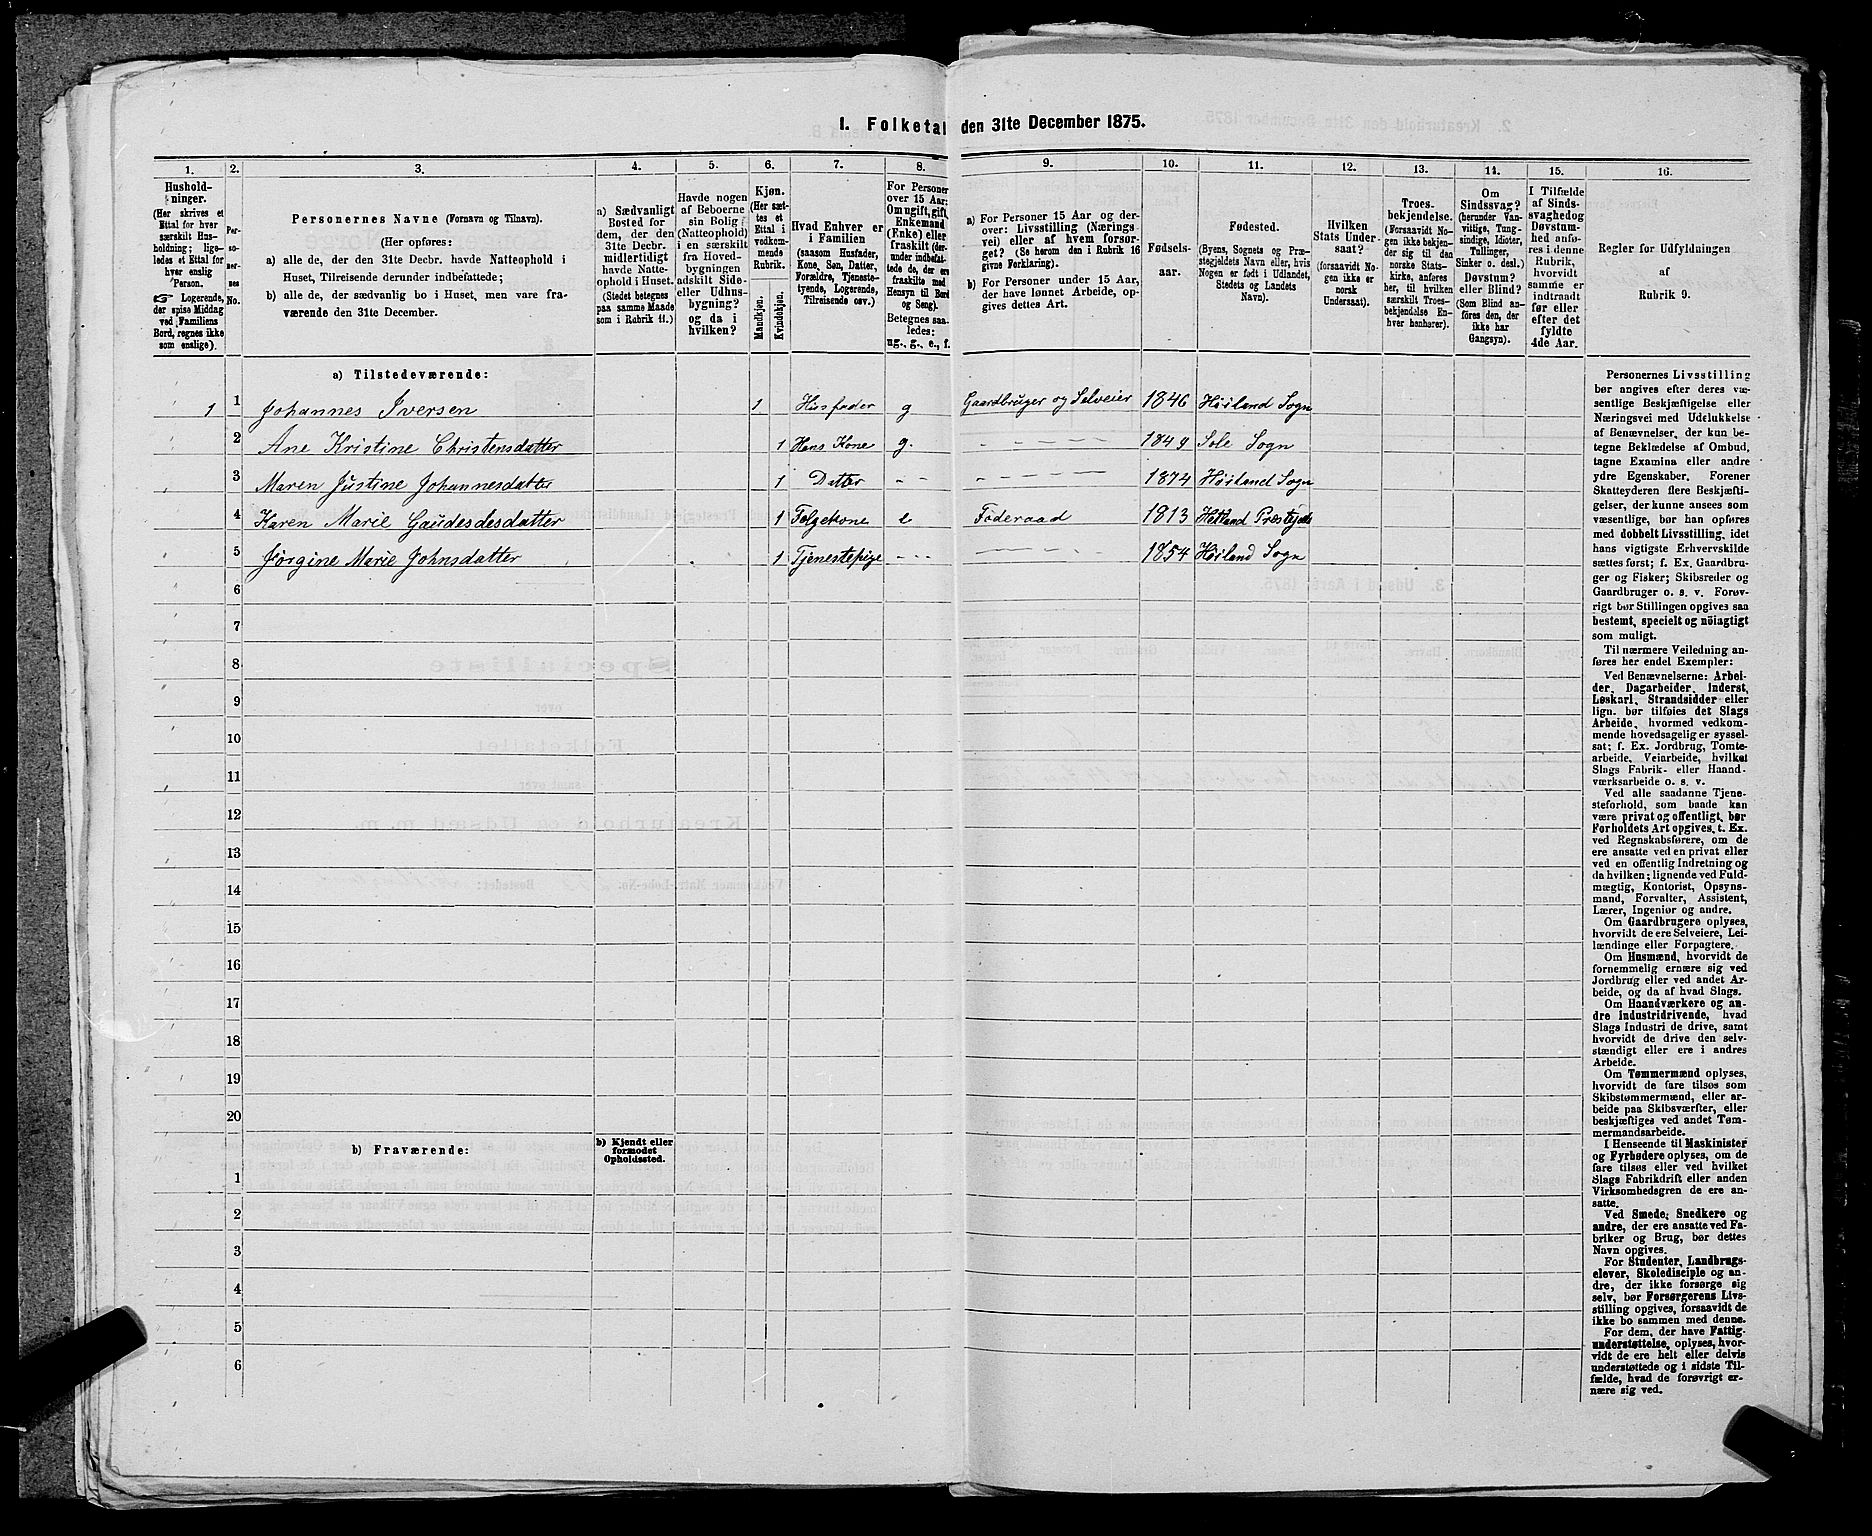 1. Folketal den 31te December 1875.
1. 2. 3. 4. 5. 6. 7. 8. 9. 10. 11. 12. 13. 14. 15. 16.
Hushold-
ninger.
(Her skrives et
Ettal for hver
særskilt Hus-
holdning; lige-
ledes et Ettal for
hver enslig
Person.
☞ Logerende,
der spise Middag
ved Familiens
Bord, regnes ikke
som enslige).
Per-
so-
ner-
nes
No.
Personernes Navne (Fornavn og Tilnavn).
(Her opføres:
a) alle de, der den 31te Decbr. havde Natteophold i
Huset, Tilreisende derunder indbefattede;
b) alle de, der sædvanlig bo i Huset, men vare fra-
værende den 31te December.
a) Sædvanligt
Bosted for
dem, der den
31te Decbr.
midlertidigt
havde Natte-
ophold i Huset.
(Stedet betegnes
paa samme Maade
som i Rubrik 11.)
Havde nogen
af Beboerne
sin Bolig
(Natteophold)
i en særskilt
fra Hoved-
bygningen
adskilt Side-
eller Udhus-
bygning?
og da i
hvilken?
Kjøn.
(Her sæt-
tes et
Ettal i
vedkom-
mende
Rubrik.
Mandkjøn.
Kvindekjøn.
Hvad Enhver er
i Familien
(saasom Husfader,
Kone, Søn, Datter,
Forældre, Tjeneste-
tyende, Logerende,
Tilreisende osv.)
For Personer
over 15 Aar:
Om ugift, gift,
Enkemand
(Enke) eller
fraskilt (der-
under indbefat-
tede de, der ere
fraskilte med
Hensyn til Bord
og Seng).
Betegnes saa-
ledes:
ug., g., e., f.
a) For Personer 15 Aar og der-
over: Livsstilling (Nærings-
vei) eller af hvem forsør-
get? (Se herom den i Rubrik 16
givne Forklaring).
b) For Personer under 15 Aar,
der have lønnet Arbeide, op-
gives dettes Art.
Fødsels-
aar.
Fødested.
(Byens, Sognets og Præ-
stegjeldets Navn eller, hvis
Nogen er født i Udlandet,
Stedets og Landets
Navn).
Hvilken
Stats Under-
saat?
(forsaavidt No-
gen ikke er
norsk
Undersaat).
Troes-
bekjendelse.
(Forsaavidt No-
gen ikke bekjen-
der sig til den
norske Stats-
kirke, anføres
her, til hvilken
særskilt Troes-
bekjendelse En-
hver henhører).
Om
Sindssvag?
(herunder Van-
vittige, Tung-
sindige, Idioter,
Tullinger,
Sinker o. desl.)
Døvstum?
eller Blind?
(Som Blind an-
føres den, der
ikke har
Gangsyn).
I Tilfælde
af Sinds-
svaghed og
Døvstum-
hed anfø-
res i denne
Rubrik,
hvorvidt
samme er
indtraadt
før eller
efter det
fyldte
4de Aar.
Regler for Udfyldningen
af
Rubrik 9.
a) Tilstedeværende:
1 1 Johannes Iversen 1 Husfader g Gaardbruger og Selveier 1846 Høiland Sogn
2 Ane Kristine Christensdatter 1 Hans Kone g. - - - - 1849 Sole Sogn
3 Maren Justine Johannesdatter 1 Datter - - - - - - 1874 Høiland Sogn
4 Karen Marie Gaudesdesdatter 1 Folgekone e Føderaad 1813 Hetland Præstejeld
5 Jørgine Marie Johnsdatter 1 Tjenestepige - - - - - - 1854 Høiland Sogn
6
7
8
9
10
11
12
13
14
15
16
17
18
19
20
b) Fraværende: b) Kjendt eller
formodet
Opholdssted.
1
2
3
4
5
6
Personernes Livsstilling
bør angives efter deres væ-
sentlige Beskjæftigelse eller
Næringsvei med Udelukkelse
af Benævnelser, der kun be-
tegne Beklædelse af Ombud,
tagne Examina eller andre
ydre Egenskaber. Forener
Skatteyderen flere Beskjæfti-
gelser, der kunne ansees som
væsentlige, bør han opføres
med dobbelt Livsstilling, idet
hans vigtigste Erhvervskilde
sættes først; f. Ex. Gaardbru-
ger og Fisker; Skibsreder og
Gaardbruger o. s. v. Forøv-
rigt bør Stillingen opgives saa
bestemt, specielt og nöiagtigt
som muligt.
Til nærmere Veiledning an-
føres her endel Exempler:
Ved Benævnelserne: Arbei-
der, Dagarbeider, Inderst,
Løskarl, Strandsidder eller
lign. bør tilføies det Slags
Arbeide, hvormed vedkom-
mende hovedsagelig er syssel-
sat; f. Ex. Jordbrug, Tomte-
arbeide, Veiarbeide, hvilket
Slags Fabrik- eller Haand-
værksarbeide o. s. v.
Ved alle saadanne Tjene-
steforhold, som baade kan
være privat og offentligt, bør
Forholdets Art opgives, t. Ex.
ved Regnskabsførere, om de
ere ansatte ved en privat eller
ved en offentlig Indretning og
da hvilken; lignende ved Fuld-
mægtig, Kontorist, Opsyns-
mand, Forvalter, Assistent,
Lærer, Ingeniør og andre.
Om Gaardbrugere oplyses,
hvorvidt de ere Selveiere, Lei-
lændinge eller Forpagtere.
Om Husmænd, hvorvidt de
fornemmelig ernære sig ved
Jordbrug eller ved andet Ar-
beide, og da af hvad Slags.
Om Haandværkere og an-
dre industridrivende, hvad
Slags Industri de drive, samt
hvorvidt de drive den selv-
stændigt eller ere i andres
Arbeide.
Om Tømmermænd oplyses,
hvorvidt de fare tilsøs som
Skibstømmermænd, eller ar-
beide paa Skibsværfter, eller
beskjæftiges ved andet Tøm-
mermandsarbeide.
I Henseende til Maskinister
og Fyrbødere oplyses, om de
fare tilsøs eller ved hvilket
Slags Fabrikdrift eller anden
Virksomhedsgren de ere an-
satte.
Ved Smede, Snedkere og
andre, der ere ansatte ved Fa-
briker og Brug, bør dettes
Navn opgives.
For Studenter, Landbrugs-
elever, Skoledisciple og an-
dre, der ikke forsørge sig
selv, bør Forsørgerens Livs-
stilling opgives, forsaavidt de
ikke bo sammen med denne.
For dem, der have Fattig-
understøttelse, oplyses, hvor-
vidt de ere helt eller delvis
understøttede og i sidste Til-
fælde, hvad de forøvrigt er-
nære sig ved.